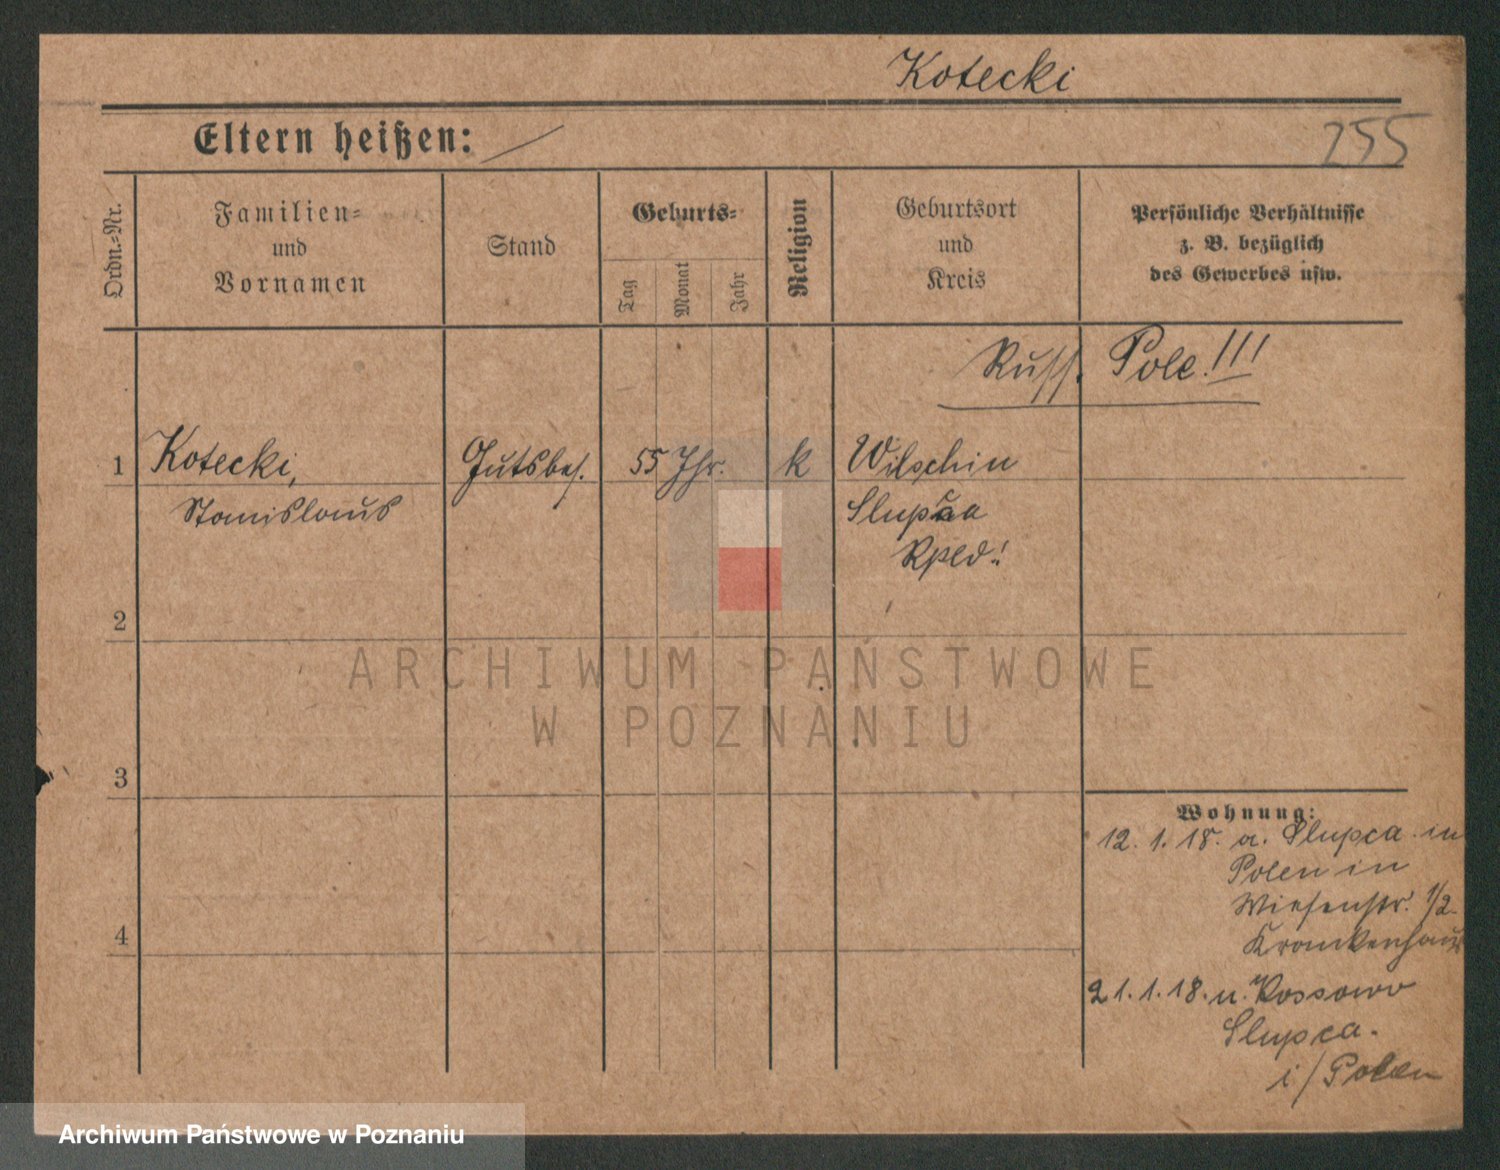 Kotecki
Eltern heißen:
255
Ordn.-Nr.
Familien-
und
Vornamen
Stand
Geburts-
Tag
Monat
Jahr
Religion
Geburtsort
und
Kreis
Persönliche Verhältnisse
z. B. bezüglich
des Gewerbes usw.
Russ. Pole!!!
1 Kotecki, Gutsbes. 55 Jhr. k Wilschin
Stanislaus Slupca
Rpld!
2
ARCHIWUM PAŃSTWOWE
W POZNANIU
3
Wohnung:
12. 1. 18. a. Slupca in
Polen in
Wiesenstr. 1/2
Krankenhaus
4
21. 1. 18. n. Kossowo
Slupca.
i/Polen
Archiwum Państwowe w Poznaniu